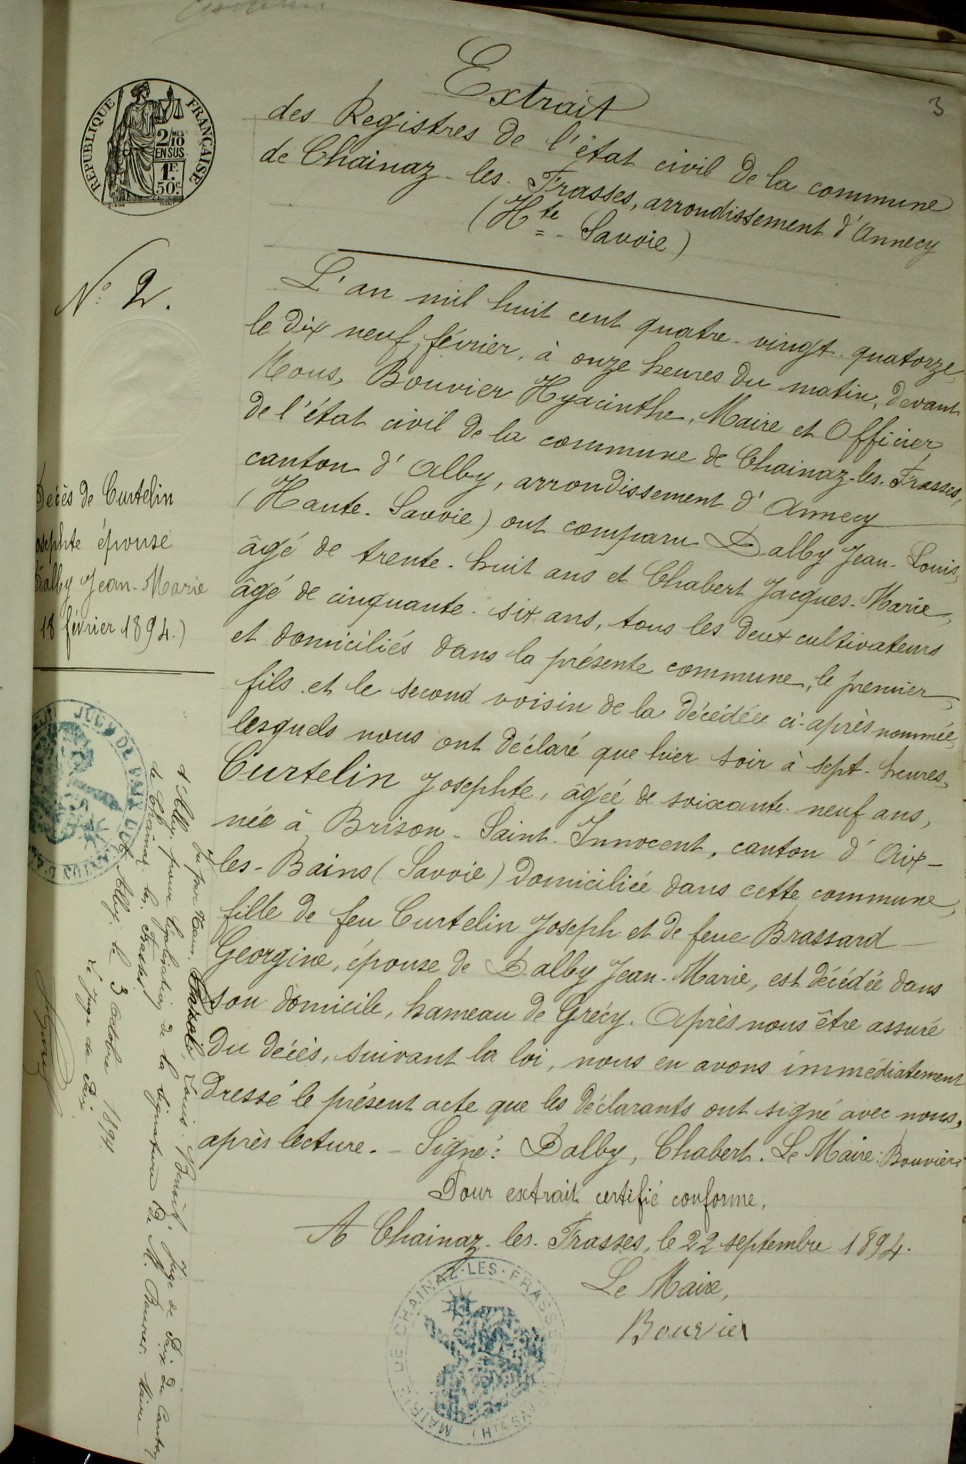 3
Extrait
des Registres de l'état civil de la commune
de Chainaz-les-Frasses, arrondissement d'Annecy
(Hte-Savoie)
RÉPUBLIQUE FRANÇAISE
2/10
EN SUS
1F.
50c
N° 2.
L'an mil huit cent quatre-vingt-quatorze,
le dix neuf février, à onze heures du matin, devant
Nous, Bouvier Hyacinthe, Maire et Officier
de l'état civil de la commune de Chainaz-les-Frasses,
canton d'Alby, arrondissement d'Annecy
(Haute-Savoie) ont comparu Dalby Jean-Louis,
âgé de trente-huit ans et Chabert Jacques-Marie,
âgé de cinquante-six ans, tous les deux cultivateurs
et domiciliés dans la présente commune, le premier
fils et le second voisin de la décédée ci-après nommée,
lesquels nous ont déclaré que hier soir à sept heures,
Curtelin Josephte, âgée de soixante-neuf ans,
née à Brison-Saint-Innocent, canton d'Aix-
les-Bains (Savoie) domiciliée dans cette commune,
fille de feu Curtelin Joseph et de feue Brassard
Géorgine, épouse de Dalby Jean-Marie, est décédée dans
son domicile, hameau de Grécy. Après nous être assuré
du décès, suivant la loi, nous en avons immédiatement
dressé le présent acte que les déclarants ont signé avec nous,
après lecture. - Signé: Dalby, Chabert. Le Maire: Bouvier.
Pour extrait certifié conforme.
A Chainaz-les-Frasses, le 22 septembre 1894.
Le Maire,
Bouvier
MAIRIE DE CHAINAZ-LES-FRASSES
Décès de Curtelin
Josephte épouse
Dalby Jean-Marie
18 février 1894.)
Vu par Nous, Louis Benoît, Juge de Paix du Canton
d'Alby, pour légalisation de la signature de M. Bouvier, Maire
de Chainaz-les-Frasses.
Alby, le 3 octobre 1894
Le Juge de Paix